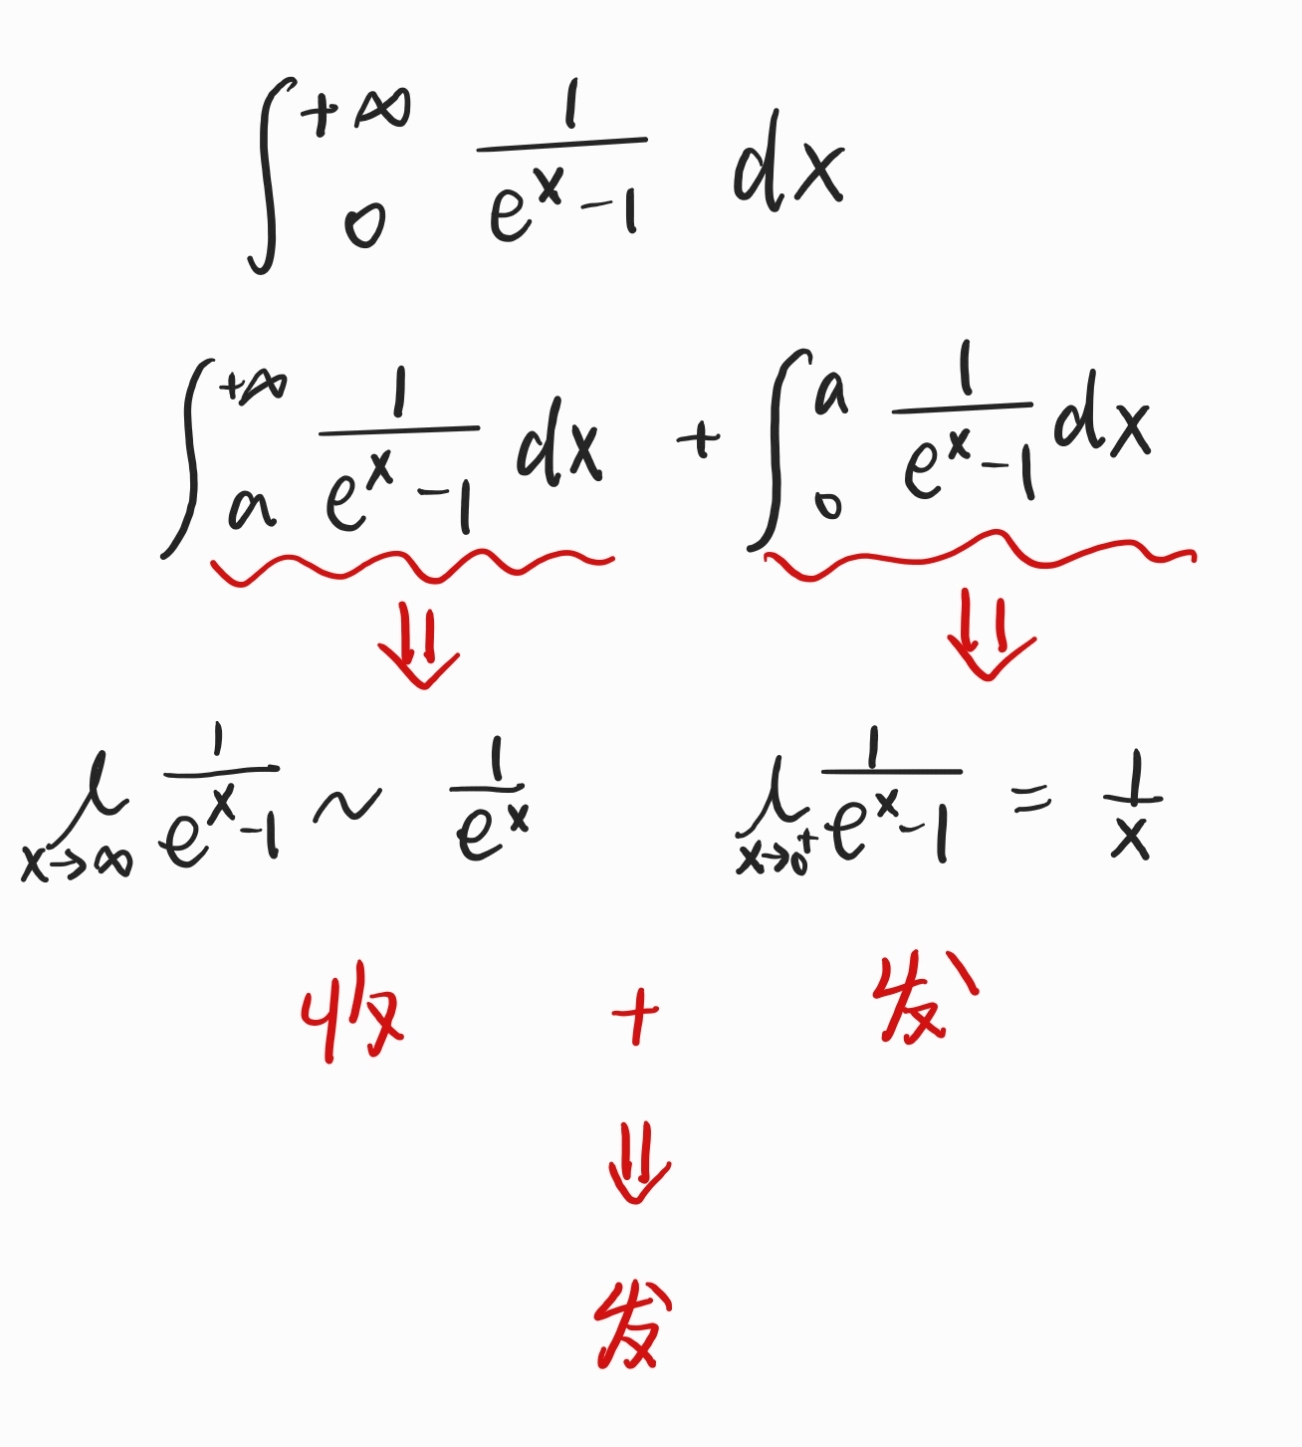 ∫₀^{+∞} 1/(e^x-1) dx
∫ₐ^{+∞} 1/(e^x-1) dx + ∫₀^a 1/(e^x-1) dx
⇓ ⇓
l_{x→∞} 1/(e^x-1) ~ 1/e^x l_{x→0⁺} 1/(e^x-1) = 1/x
收 + 发
⇓
发